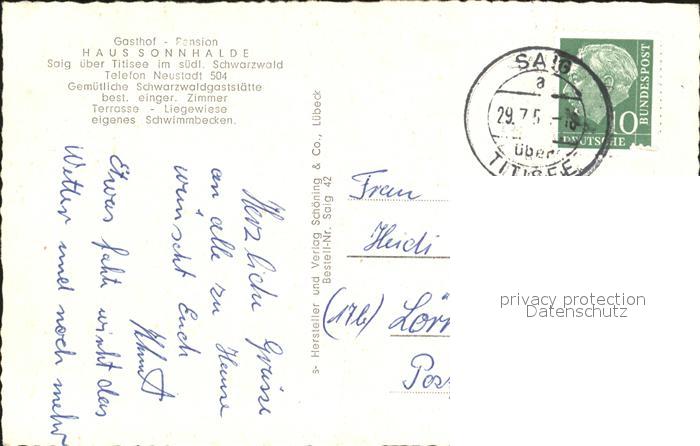 Gasthof - Pension
HAUS SONNHALDE
Saig über Titisee im südl. Schwarzwald
Telefon Neustadt 504
Gemütliche Schwarzwaldgaststätte
best. einger. Zimmer
Terrasse - Liegewiese
eigenes Schwimmbecken.
Herzliche Grüsse
an alle zu Hause
wünscht Euch
Etwas
Wetter und noch mehr
s- Hersteller und Verlag Schöning & Co., Lübeck
Bestell-Nr. Saig 42
SAIG
a
29.7.5
über
TITISEE
10
DEUTSCHE
BUNDESPOST
Frau
Heidi
(17b) Lörr
Pos
privacy protection
Datenschutz